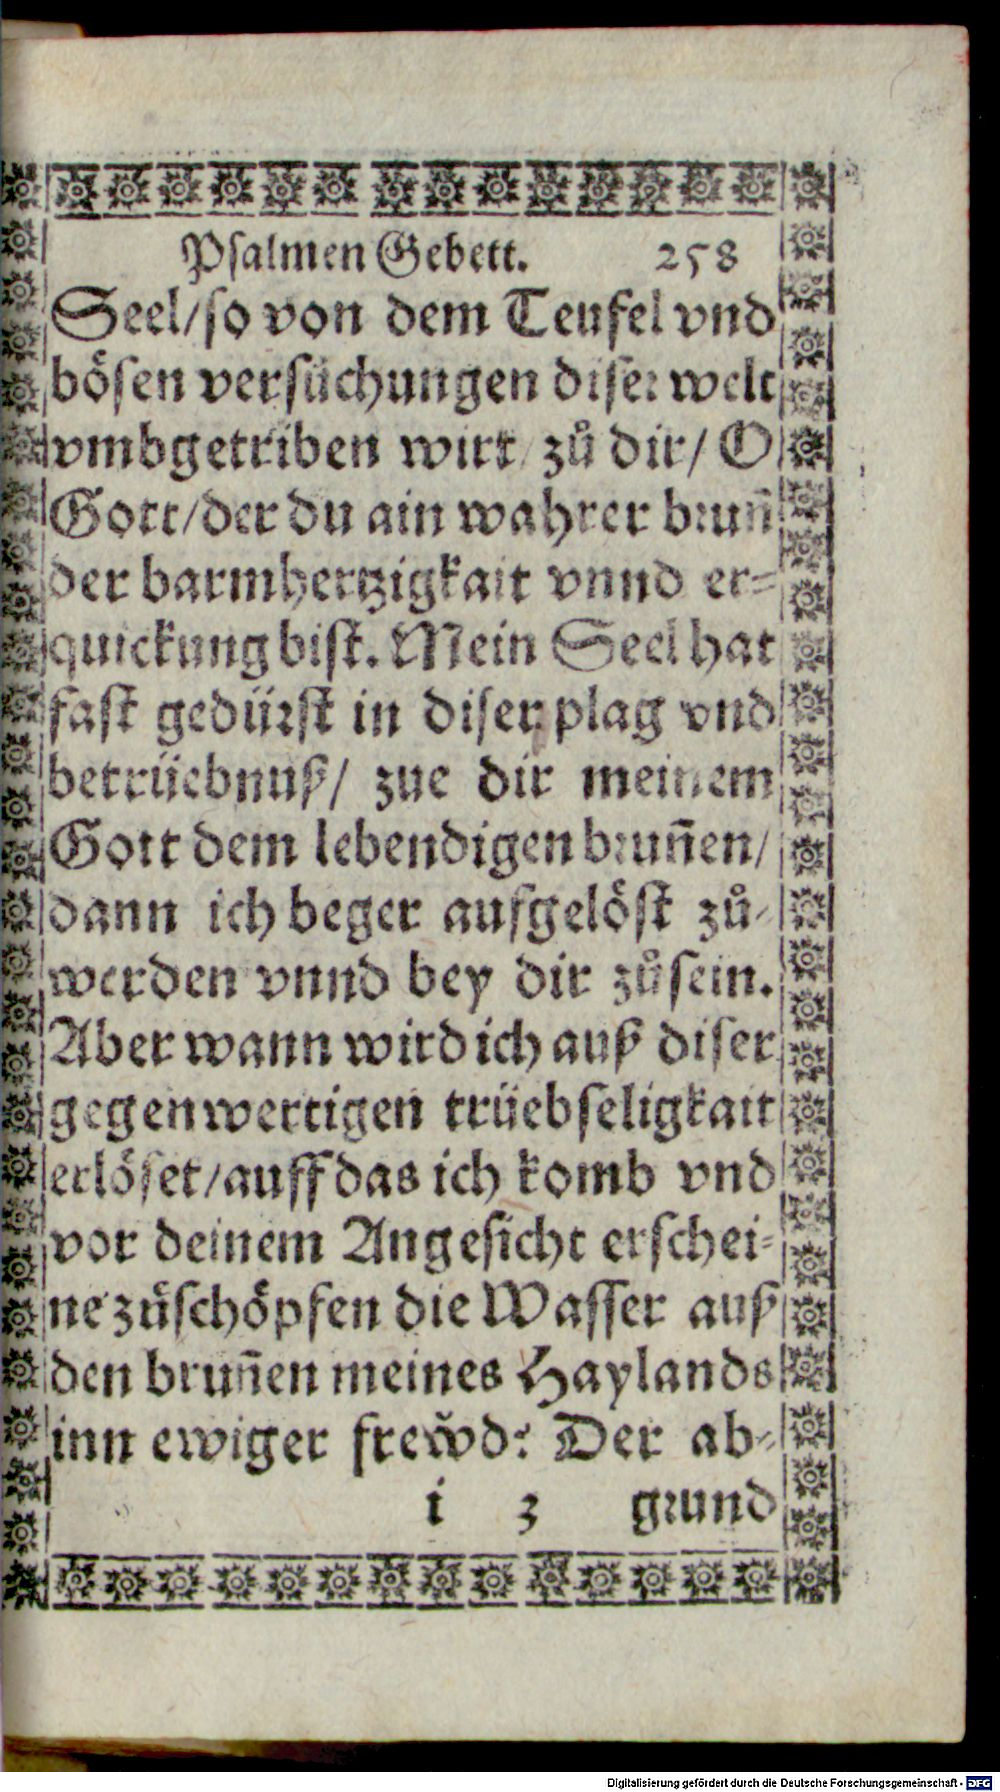 Psalmen Gebett. 258
Seel/so von dem Teufel vnd
bösen versuͤchungen diser welt
vmbgetriben wirt/ zů dir/ O
Gott/der du ain wahrer brun̄
der barmhertzigkait vnnd er-
quickung bist. Mein Seel hat
fast gedürst in diser plag vnd
betrüebnuß/ zue dir meinem
Gott dem lebendigen brun̄en/
dann ich beger aufgelöst zů-
werden vnnd bey dir zůsein.
Aber wann wird ich auß diser
gegenwertigen trüebseligkait
erlöset/auff das ich komb vnd
vor deinem Angesicht erschei-
ne zůschöpfen die Wasser auß
den brun̄en meines Haylands
inn ewiger frew̌d? Der ab-
i 3 grund
Digitalisierung gefördert durch die Deutsche Forschungsgemeinschaft - DFG